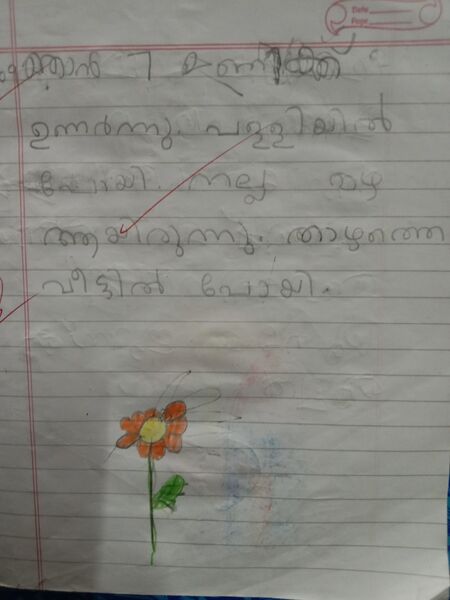 Date
Page
ഞാൻ 7 മണിക്ക്
ഉണർന്നു. പള്ളിയിൽ
പോയി. നല്ല മഴ
ആയിരുന്നു. താഴത്തെ
വീട്ടിൽ പോയി.